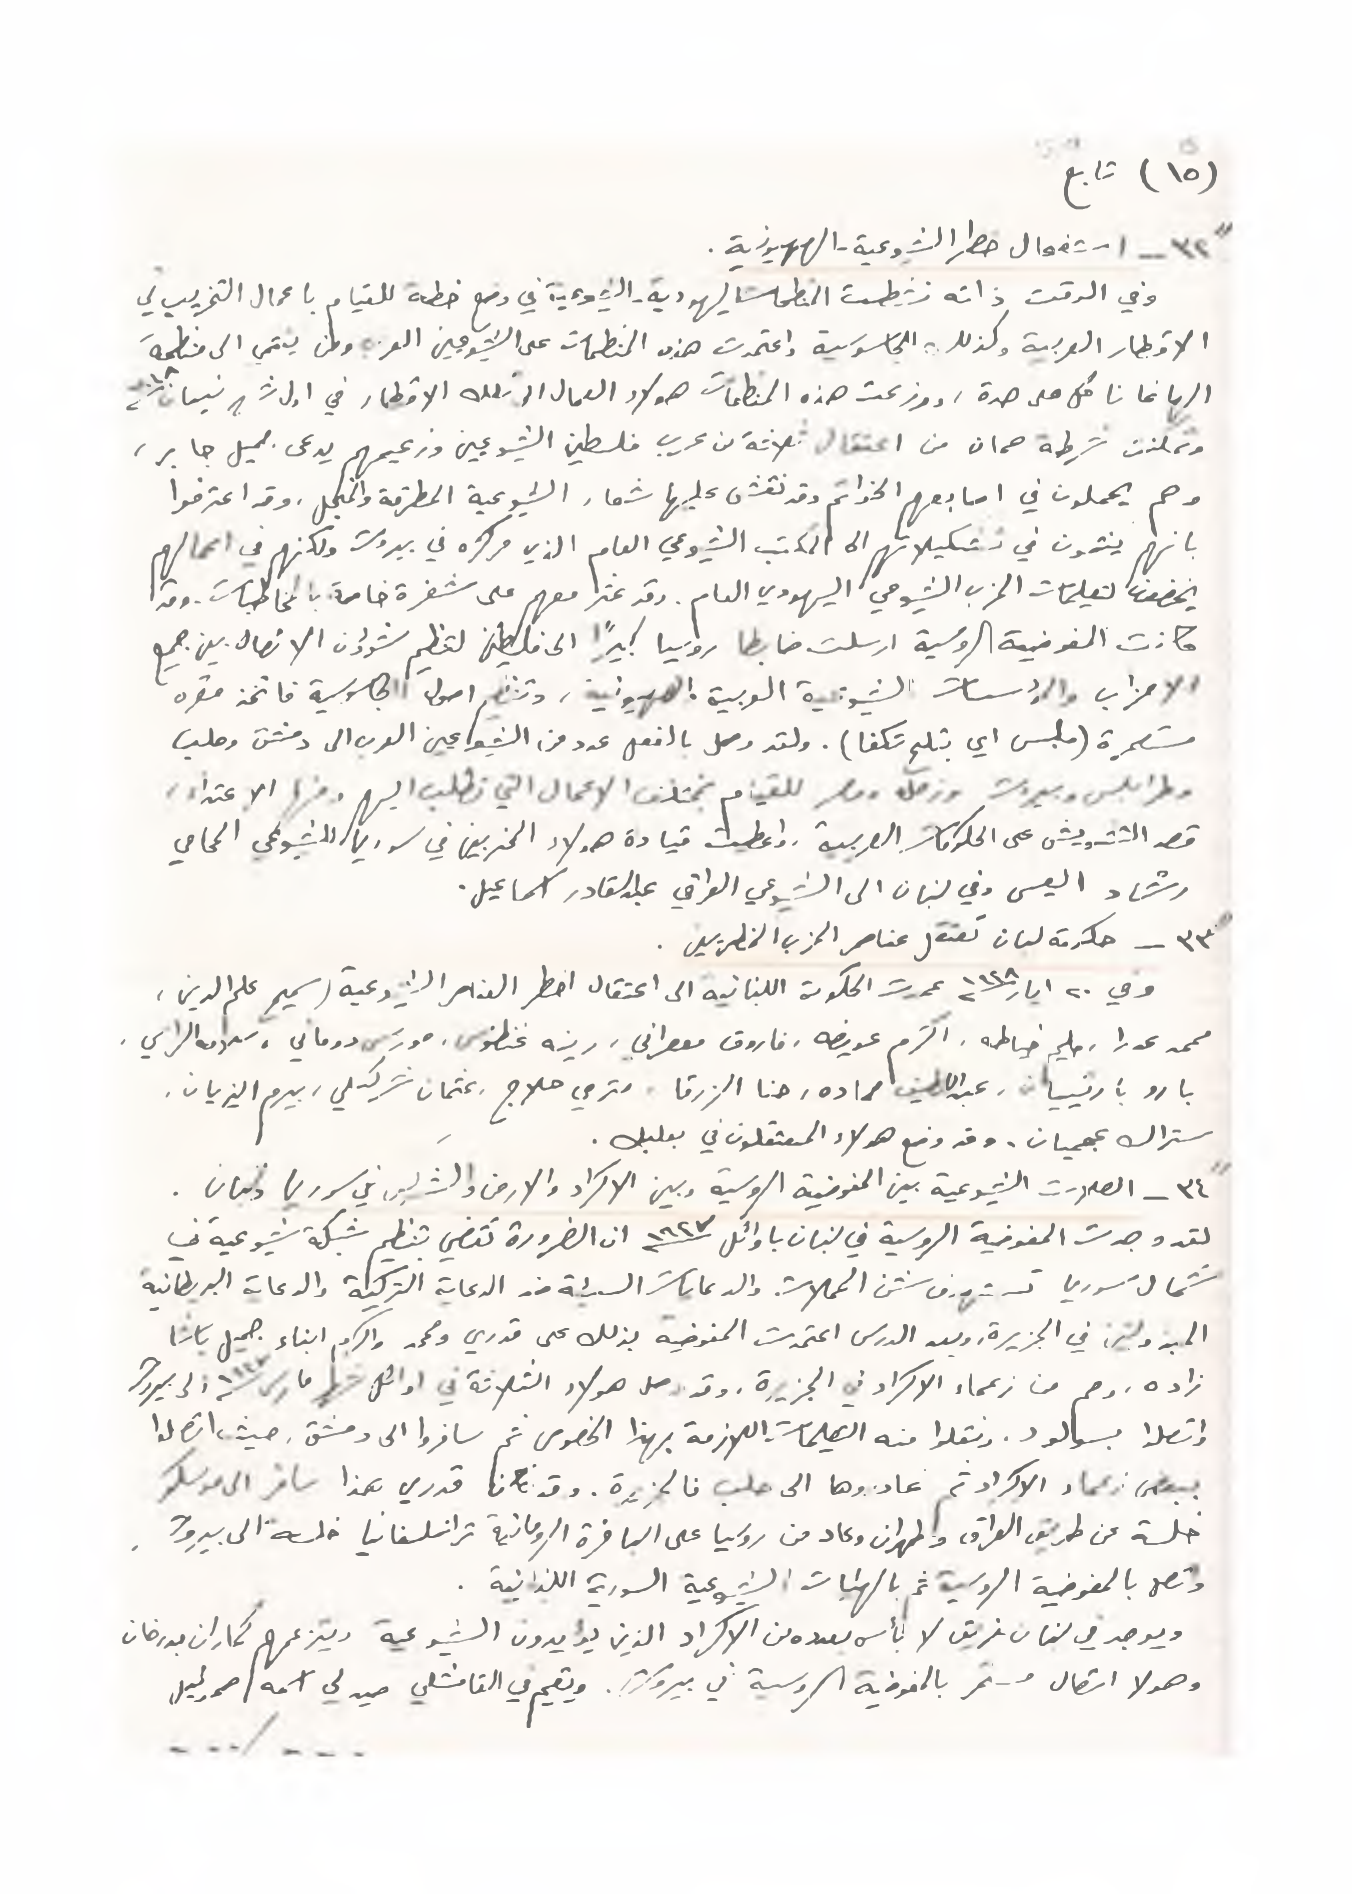 (١٥) تابع
٣٢ــ استفحال خطر الشيوعية - الصهيونية .
وفي الوقت ذاته نشطت المنظمات اليهودية - الشيوعية في وضع خطة للقيام باعمال التخريب في
الاقطار العربية وكذلك الجاسوسية واعتمدت هذه المنظمات على الشيوعيين العرب ومن ينتمي الى منظمة
الهاغانا كل على حدة ، ووزعت هذه المنظمات هولاء العمال الى تلك الاقطار في اول شهر نيسان
وتمكنت شرطة عمان من اعتقال ثلاثة من عرب فلسطين الشيوعيين وزعيمهم يدعى جميل جابر ،
وهم يحملون في اصابعهم الخواتم وقد نقش عليها شعار الشيوعية المطرقة والمنجل ، وقد اعترفوا
بانهم ينتمون في تشكيلاتهم الى المكتب الشيوعي العام الذي مركزه في بيروت ولكنهم في اعمالهم
يخضعون لتعليمات الحزب الشيوعي اليهودي العام . وقد عثر معهم على شفرة خاصة بالمخاطبات . وقد
كانت المفوضية الروسية ارسلت ضابطا روسيا كبيرًا الى فلسطين لتنظيم شؤون الاتصال بين جميع
الاحزاب والمؤسسات الشيوعية العربية الصهيونية ، وتنظيم اصول الجاسوسية فاتخذ مقره
مستعمرة (ملبس اي بتاح تكفا) . ولقد وصل بالفعل عدد من الشيوعيين العرب الى دمشق وحلب
وطرابلس وبيروت وزحلة ومصر للقيام بمختلف الاعمال التي تطلب اليهم ومنها الاعتداء ،
قصد التشويش على الحكومات العربية ، واعطيت قيادة هولاء المخربين في سوريا للشيوعي المحامي
رشاد العيسى وفي لبنان الى الشيوعي العراقي عبدالقادر اسماعيل .
٣٣ــ حكومة لبنان تعتقل عناصر الحزب الخطرين .
وفي ٢٠ ايار ١٩٤٨ عمدت الحكومة اللبنانية الى اعتقال اخطر العناصر الشيوعية (سميح علم الدين ،
محمد عدرا ، حليم خياطه ، اكرم عويضه ، فاروق معصراني ، رينه غنطوس ، موريس دوماني ، سلامه الراسي ،
بارو بارتيسيان ، عبداللطيف حماده ، حنا الزرقا ، متري حلاج ، عثمان شركتلي ، بيرم اليزيان ،
ستراك عجميان . وقد وضع هولاء المعتقلون في بعلبك .
٣٤ــ الصلات الشيوعية بين المفوضية الروسية وبين الاكراد والارمن والشركس في سوريا ولبنان .
لقد وجدت المفوضية الروسية في لبنان باوائل ١٩٤٧ ان الضرورة تقضي بتنظيم شبكة شيوعية في
شمال سوريا تستهدف شن الحملات والدعايات السيئة ضد الدعاية التركية والدعاية البريطانية
المبذولتين في الجزيرة ، وبعد الدرس اعتمدت المفوضية بذلك على قدري ومحمد واكرم ابناء جميل باشا
زاده ، وهم من زعماء الاكراد في الجزيرة ، وقد وصل هولاء الثلاثة في اوائل مارس ١٩٤٧ الى بيروت
واتصلوا بسولود ، ونقلوا منه التعليمات اللازمة بهذا الخصوص ثم سافروا الى دمشق ، حيث اتصلوا
ببعض زعماء الاكراد ثم عادوها الى حلب فالجزيرة . وقد كان قدري هذا سافر الى موسكو
خلسة عن طريق العراق وطهران وعاد من روسيا على الباخرة الرومانية ترانسلفانيا خلسة الى بيروت .
واتصل بالمفوضية الروسية ثم بالهيئات الشيوعية السورية اللبنانية .
ويوجد في لبنان فريق لا بأس بعدده من الاكراد الذين يؤيدون الشيوعية ويتزعمهم كامران بدرخان
وهولا اتصال مستمر بالمفوضية الروسية في بيروت . ويقيم في القامشلي صيدلي اسمه